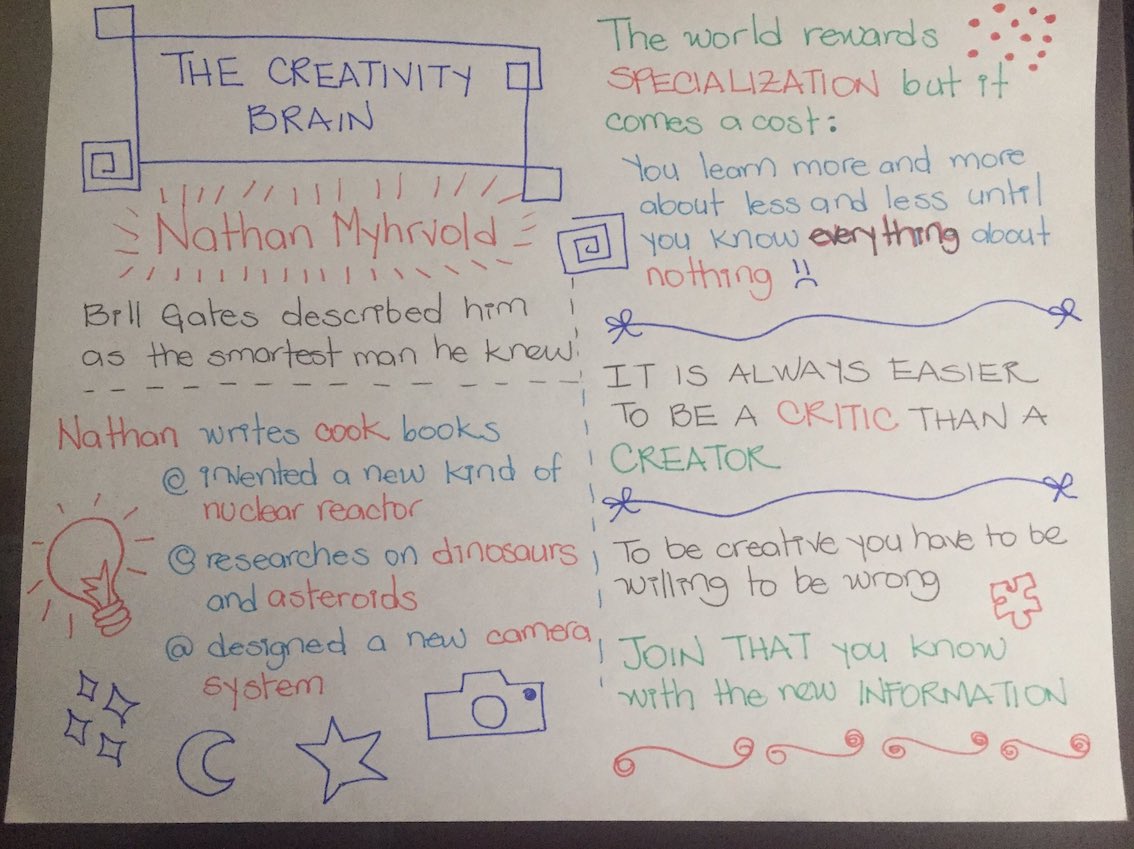 THE CREATIVITY
BRAIN
Nathan Myhrvold
Bill Gates described him
as the smartest man he knew
Nathan writes cook books
@ invented a new kind of
nuclear reactor
@ researches on dinosaurs
and asteroids
@ designed a new camera
system
The world rewards
SPECIALIZATION but it
comes a cost:
You learn more and more
about less and less until
you know everything about
nothing
IT IS ALWAYS EASIER
TO BE A CRITIC THAN A
CREATOR
To be creative you have to be
willing to be wrong
JOIN THAT you know
with the new INFORMATION